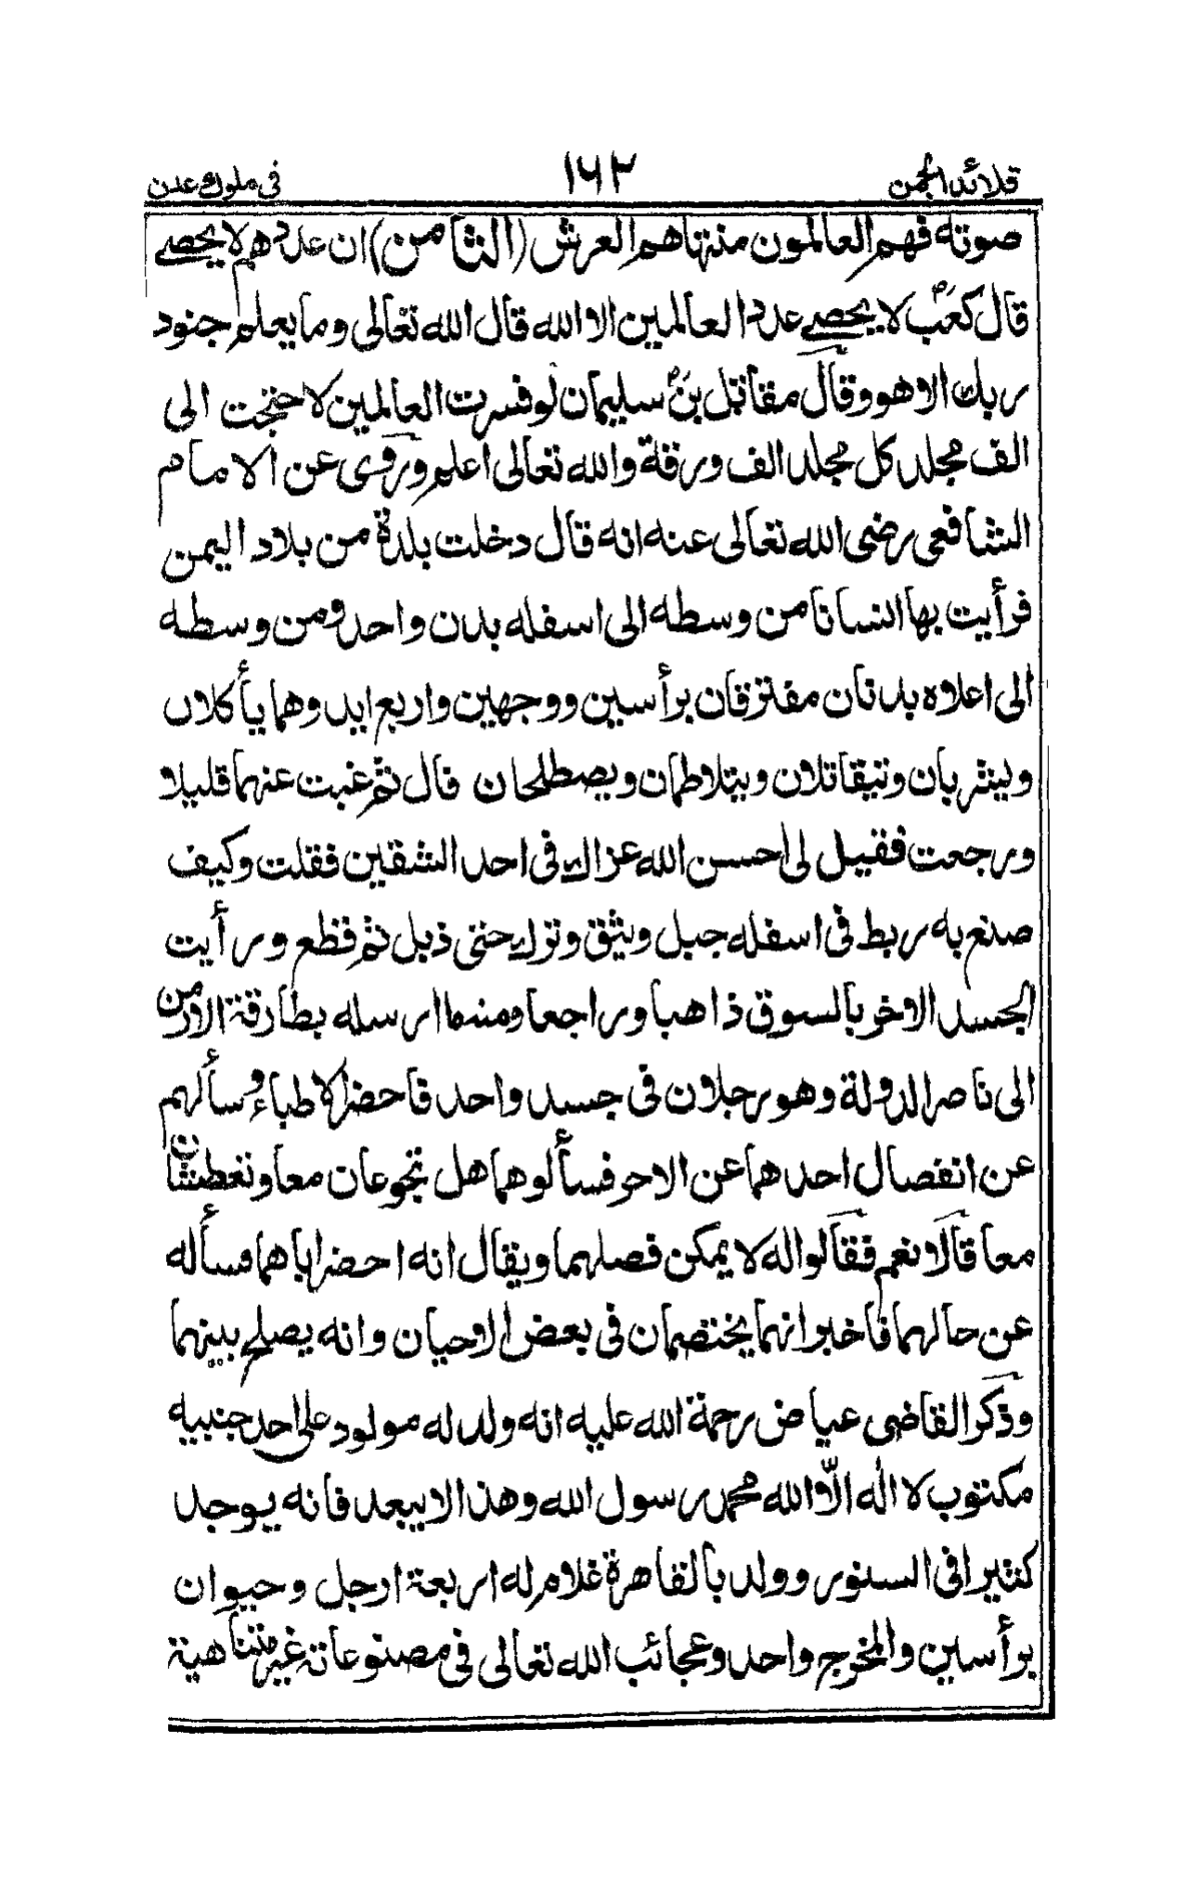 قلائد الجمن ١٦٢ في ملوك عدن
صوته فهم العالمون منتهاهم العرش (الثامن) ان عددهم لا يحصى
قال كعب لا يحصى عدد العالمين الا الله قال الله تعالى وما يعلم جنود
ربك الا هو وقال مقاتل بن سليمان لو فسرت العالمين لاحتجت الى
الف مجلد كل مجلد الف ورقة والله تعالى اعلم وروى عن الامام
الشافعي رضي الله تعالى عنه انه قال دخلت بلدة من بلاد اليمن
فرأيت بها انسانا من وسطه الى اسفله بدن واحد ومن وسطه
الى اعلاه بدنان مفترقان برأسين ووجهين واربع ايد وهما يأكلان
ويشربان ويتقاتلان ويتلاطمان ويصطلحان قال ثم غبت عنهما قليلا
ورجعت فقيل لي احسن الله عزاك في احد الشقين فقلت وكيف
صنع به ربط في اسفله حبل وثيق وترك حتى ذبل ثم قطع ورأيت
الجسد الاخر بالسوق ذاهبا وراجعا ومنها ارسله بطارقة الارمن
الى ناصر الدولة وهو رجلان في جسد واحد فاحضر الاطباء وسألهم
عن انفصال احدهما عن الاخر فسألوهما هل تجوعان معا وتعطشان
معا قالا نعم فقالوا له لا يمكن فصلهما ويقال انه احضر اباهما وسأله
عن حالهما فاخبر انهما يختصمان في بعض الاحيان وانه يصلح بينهما
وذكر القاضي عياض رحمة الله عليه انه ولد له مولود على احد جنبيه
مكتوب لا اله الّا الله محمد رسول الله وهذا لا يبعد فانه يوجد
كثيرا في السنور وولد بالقاهرة غلام له اربعة ارجل وحيوان
برأسين والمخرج واحد وعجائب الله تعالى في مصنوعاته غير متناهية